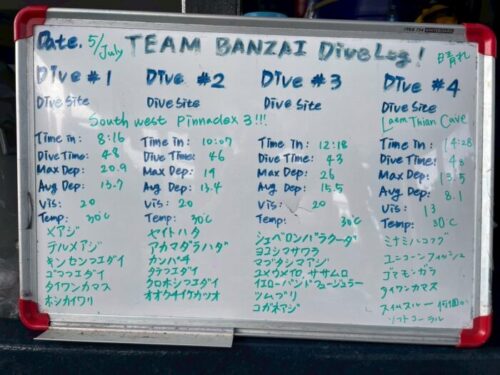 Date. 5/July TEAM BANZAI Dive Log! 晴れ
Dive #1
Dive Site
South west Pinnacle x 3!!!
Time in: 8:16
Dive Time: 48
Max Dep: 20.9
Avg Dep: 13.7
Vis: 20
Temp: 30℃
メアジ
テルメアジ
キンセンフエダイ
ゴマフエダイ
タイワンカマス
ホシカイワリ
Dive #2
Dive Site
Time in: 10:07
Dive Time: 46
Max Dep: 19
Avg Dep: 13.4
Vis: 20
Temp: 30℃
ヤイトハタ
アカマダラハタ
カンパチ
タテフエダイ
クロホシフエダイ
オオクチイケカツオ
Dive #3
Dive Site
Time in: 12:18
Dive Time: 43
Max Dep: 26
Avg Dep: 15.5
Vis: 20
Temp: 30℃
シェブロンバラクーダ
ヨコシマサワラ
マブタシマアジ
ユメウメイロ, ササムロ
イエローバンドフュージュラー
ツムブリ
コガネアジ
Dive #4
Dive Site
Laem Thian Cave
Time in: 14:28
Dive Time:
Max Dep: 13.5
Avg Dep: 8.1
Vis: 13
Temp: 30℃
ミナミハコフグ
ユニコーンフィッシュ
ゴマモンガラ
タイワンカマス
スイムスルー 何個か
ソフトコーラル